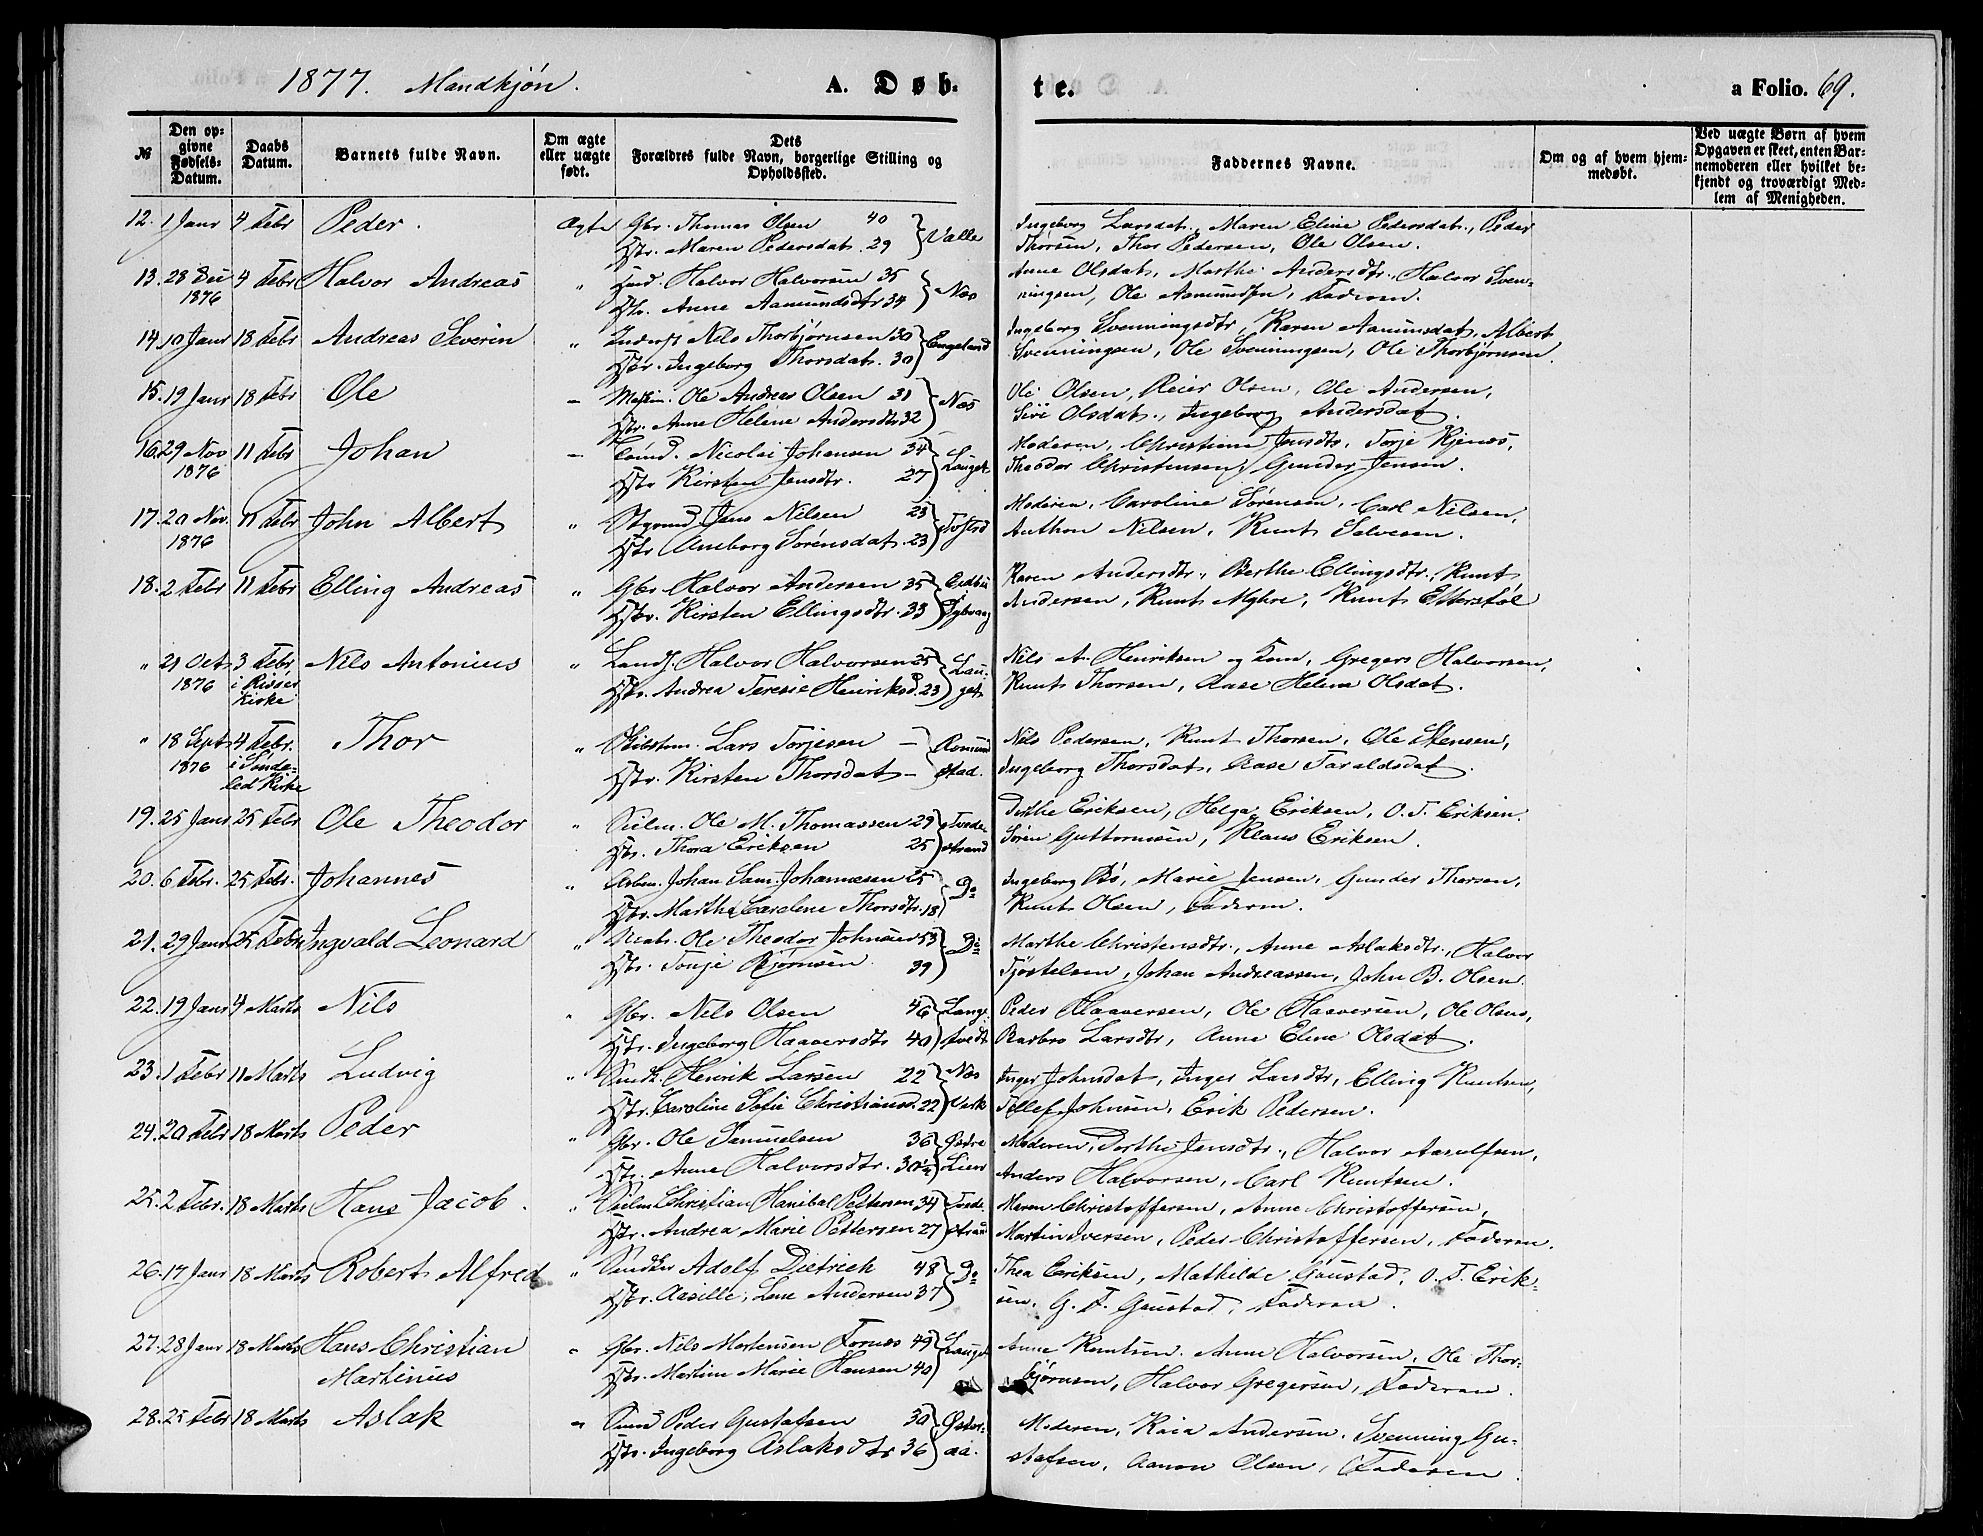 1877. Mandkjøn. A. Døb- te. a Folio. 69.
№
Den op-
givne
Fødsels-
Datum.
Daabs
Datum.
Barnets fulde Navn.
Om ægte
eller uægte
født.
Dets
Forældres fulde Navn, borgerlige Stilling og
Opholdssted.
Faddernes Navne.
Om og af hvem hjem-
medøbt.
Ved uægte Børn af hvem
Opgaven er skeet, enten Bar-
nemoderen eller hvilket be-
kjendt og troværdigt Med-
lem af Menigheden.
12. 1 Janr 4 Febr Peder. Ægte Gbr. Thomas Olsen 40 Valle Ingeborg Larsdat., Maren Eline Pedersdat., Peder
Hstr. Maren Pedersdat. 29 Thorsen, Thor Pedersen, Ole Olsen.
13. 28 Dec 4 Febr Halvor Andreas " Halvor Halvorsen 35 Næs Anne Olsdat, Marthe Andersdtr., Halvor Sven-
1876 Hstr. Anne Aamundsdtr 34 ningsen, Ole Aamundsen, Faderen.
14. 10 Janr 18 Febr Andreas Severin " Inderst Nils Thorbjørnsen 30 Engeland Ingeborg Svenningsdtr, Karen Aamunsdat, Albert
Hstr. Ingeborg Thorsdat. 30 Svenningsen, Ole Svenningsen, Ole Thorbjørnsen.
15. 19 Janr 18 Febr Ole — Ole Andreas Olsen 31 Næs Ole Olsen, Reier Olsen, Ole Andersen,
Hstr. Anne Helene Andersdtr 32 Siri Olsdat., Ingeborg Andersdat.
16. 29 Nov 11 Febr Johan — Nicolai Johansen 34 Lauget Moderen, Christiane Jensdtr, Torje Kjenæs,
1876 Hstr Kirsten Jensdtr. 27 Theodor Christensen, Gunder Jensen.
17. 20 Nov. 11 Febr John Albert " Styrmd Jens Nilsen 23 Moderen, Caroline Sørensen, Carl Nilsen,
1876 Hstr Aneborg Sørensdat. 23 Anthon Nilsen, Knut Salvesen.
18. 2 Febr 11 Febr Elling Andreas " Gbr Halvor Andersen 35 Eidbu Karen Andersdtr., Berthe Ellingsdtr., Knut
Hstr. Kirsten Ellingsdtr. 33 Dybvaag Andersen, Knut Myhre, Knut Efterstøl
" 21 Oct 3 Febr Nils Antonius " Landh. Halvor Halvorsen 25 Lau- Nils A. Henriksen og Kone, Gregers Halvorsen,
1876 i Risøer Hstr. Andrea Teresie Henriksd. 23 get Knut Thorsen, Aase Helene Olsdat.
Kirke
" 18 Sept 4 Febr. Thor " Skibstm. Lars Torjesen — Romund Nils Pedersen, Knut Thorsen, Ole Stensen,
1876 i Sønde- Hstr. Kirsten Thorsdat — stad. Ingeborg Thorsdat, Aase Taraldsdat.
led Kirke
19. 25 Janr 25 Febr Ole Theodor " Seilm. Ole M. Thomassen 29 Tvede- Dorthe Eriksen, Helga Eriksen, O. T. Eriksen.
Hstr. Thora Eriksen 25 strand Søren Guttormsen, Klaus Eriksen.
20. 6 Febr. 25 Febr. Johannes " Arbm. Johan Sam. Johannesen 25 Do Ingeborg Bø, Marie Jensen, Gunder Thorsen,
Hstr. Marthe Carolene Thorsdtr. 18 Knut Olsen, Faderen.
21. 29 Janr 25 Febr Ingvald Leonard " Ole Theodor Johnsen 53 Do Marthe Christensdtr., Anne Aslaksdtr., Halvor
Hstr. Tonje Bjørnsen 39 Tjøstelsen, Johan Andreassen, John B. Olsen.
22. 19 Janr 4 Marts Nils " Gbr. Nils Olsen 46 Langs- Peder Haaversen, Ole Haaversen, Ole Olsen,
Hstr. Ingeborg Haaversdtr 40 tvedt Barbro Larsdtr, Anne Eline Olsdat.
23. 1 Febr 11 Marts Ludvig " Smedk. Henrik Larsen 22 Næs Inger Johnsdat, Inger Larsdtr, Elling Knutsen,
Hstr. Caroline Sofie Christiansd. 22 Verk Tellef Johnsen, Erik Pedersen.
24. 20 Febr 18 Marts Peder " Gbr. Ole Samuelsen 36 Østre Moderen, Dorthe Jensdtr., Halvor Aasulfsen,
Hstr. Anne Halvorsdtr. 30½ Lien Anders Halvorsen, Carl Knutsen.
25. 2 Febr. 18 Marts Hans Jacob. " Seilm Christian Hanibal Pettersen 34 Tvede- Maren Christoffersen, Anne Christoffersen,
Hstr. Andrea Marie Pettersen 27 strand Martin Iversen, Peder Christoffersen, Faderen.
26. 17 Janr 18 Marts Robert Alfred " Snedker Adolf Dietrich 48 Do Thea Eriksen, Mathilde Gaustad, O. T. Erik-
Hstr. Aasille Lene Andersen 37 sen, G. F. Gaustad, Faderen.
27. 28 Janr 18 Marts Hans Christian " Gbr. Nils Mortensen Fornæs 49 Lauget Anne Knutsen, Anne Halvorsen, Ole Thor-
Martinius Hstr. Martine Marie Hansen 40 bjørnsen, Halvor Gregersen, Faderen.
28. 25 Febr 18 Marts Aslak " Peder Gustafsen 30 Øster- Moderen, Kaia Andersen, Svenning Gu-
Hstr. Ingeborg Aslaksdtr 36 aa. stafsen, Aanon Olsen, Faderen.